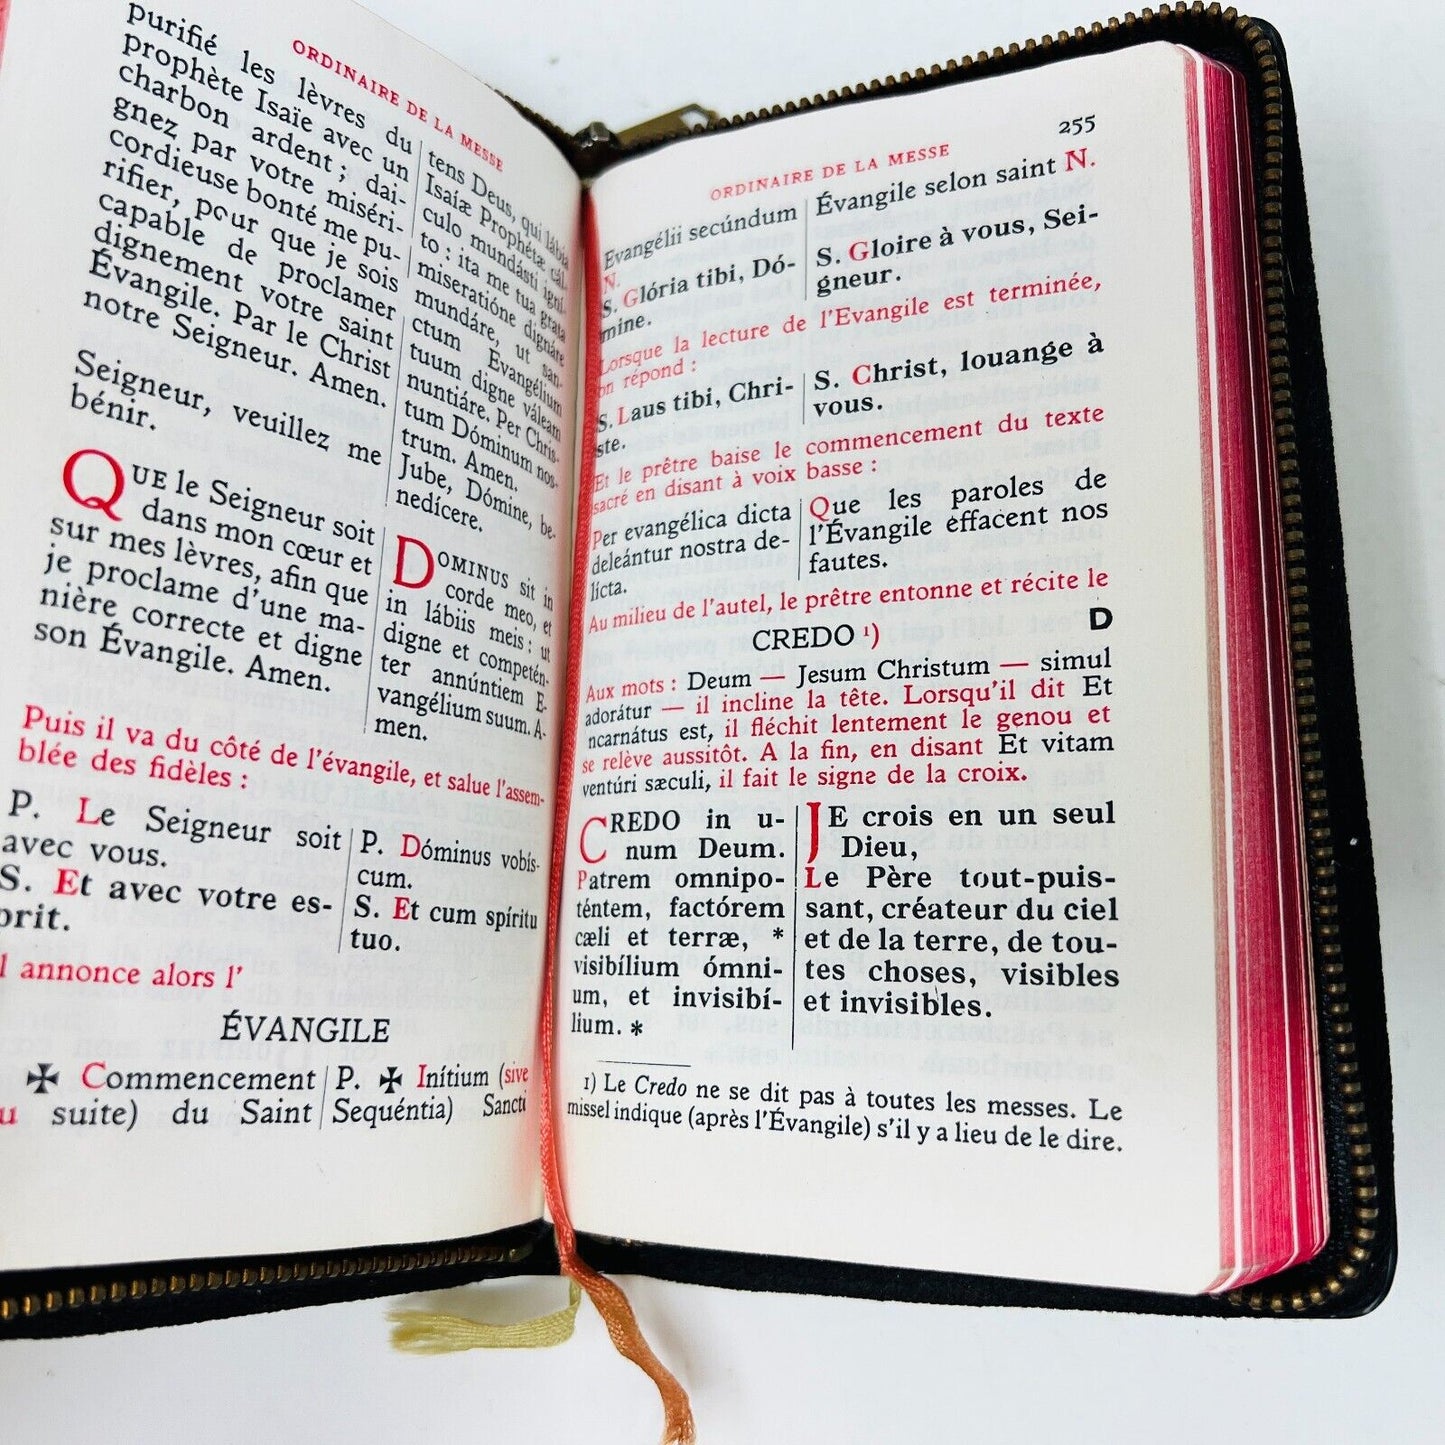 ORDINAIRE DE LA MESSE
purifié les lèvres du
prophète Isaïe avec un
charbon ardent ; dai-
gnez par votre miséri-
cordieuse bonté me pu-
rifier, pour que je sois
capable de proclamer
dignement votre saint
Évangile. Par le Christ
notre Seigneur. Amen.
Seigneur, veuillez me
bénir.
QUE le Seigneur soit
dans mon cœur et
sur mes lèvres, afin que
je proclame d'une ma-
nière correcte et digne
son Évangile. Amen.
tens Deus, qui lábia
Isaíæ Prophétæ cál-
culo mundásti igní-
to : ita me tua grata
miseratióne dignáre
mundáre, ut san-
ctum Evangélium
tuum digne váleam
nuntiáre. Per Chris-
tum Dóminum nos-
trum. Amen.
Jube, Dómine, be-
nedícere.
DOMINUS sit in
corde meo, et
in lábiis meis : ut
digne et competén-
ter annúntiem E-
vangélium suum. A-
men.
Puis il va du côté de l'évangile, et salue l'assem-
blée des fidèles :
P. Le Seigneur soit
avec vous.
S. Et avec votre es-
prit.
P. Dóminus vobís-
cum.
S. Et cum spíritu
tuo.
l annonce alors l'
ÉVANGILE
✠ Commencement
u suite) du Saint
P. ✠ Inítium (sive
Sequéntia) Sancti
255
ORDINAIRE DE LA MESSE
Evangélii secúndum
N.
S. Glória tibi, Dó-
mine.
Évangile selon saint N.
S. Gloire à vous, Sei-
gneur.
Lorsque la lecture de l'Evangile est terminée,
on répond :
S. Laus tibi, Chri-
ste.
S. Christ, louange à
vous.
Et le prêtre baise le commencement du texte
sacré en disant à voix basse :
Per evangélica dicta
deleántur nostra de-
lícta.
Que les paroles de
l'Évangile effacent nos
fautes.
Au milieu de l'autel, le prêtre entonne et récite le
CREDO 1)
D
Aux mots : Deum — Jesum Christum — simul
adorátur — il incline la tête. Lorsqu'il dit Et
ncarnátus est, il fléchit lentement le genou et
se relève aussitôt. A la fin, en disant Et vitam
ventúri sæculi, il fait le signe de la croix.
CREDO in u-
num Deum.
Patrem omnipo-
téntem, factórem
cæli et terræ, *
visibílium ómni-
um, et invisibí-
lium. *
JE crois en un seul
Dieu,
Le Père tout-puis-
sant, créateur du ciel
et de la terre, de tou-
tes choses, visibles
et invisibles.
1) Le Credo ne se dit pas à toutes les messes. Le
missel indique (après l'Évangile) s'il y a lieu de le dire.